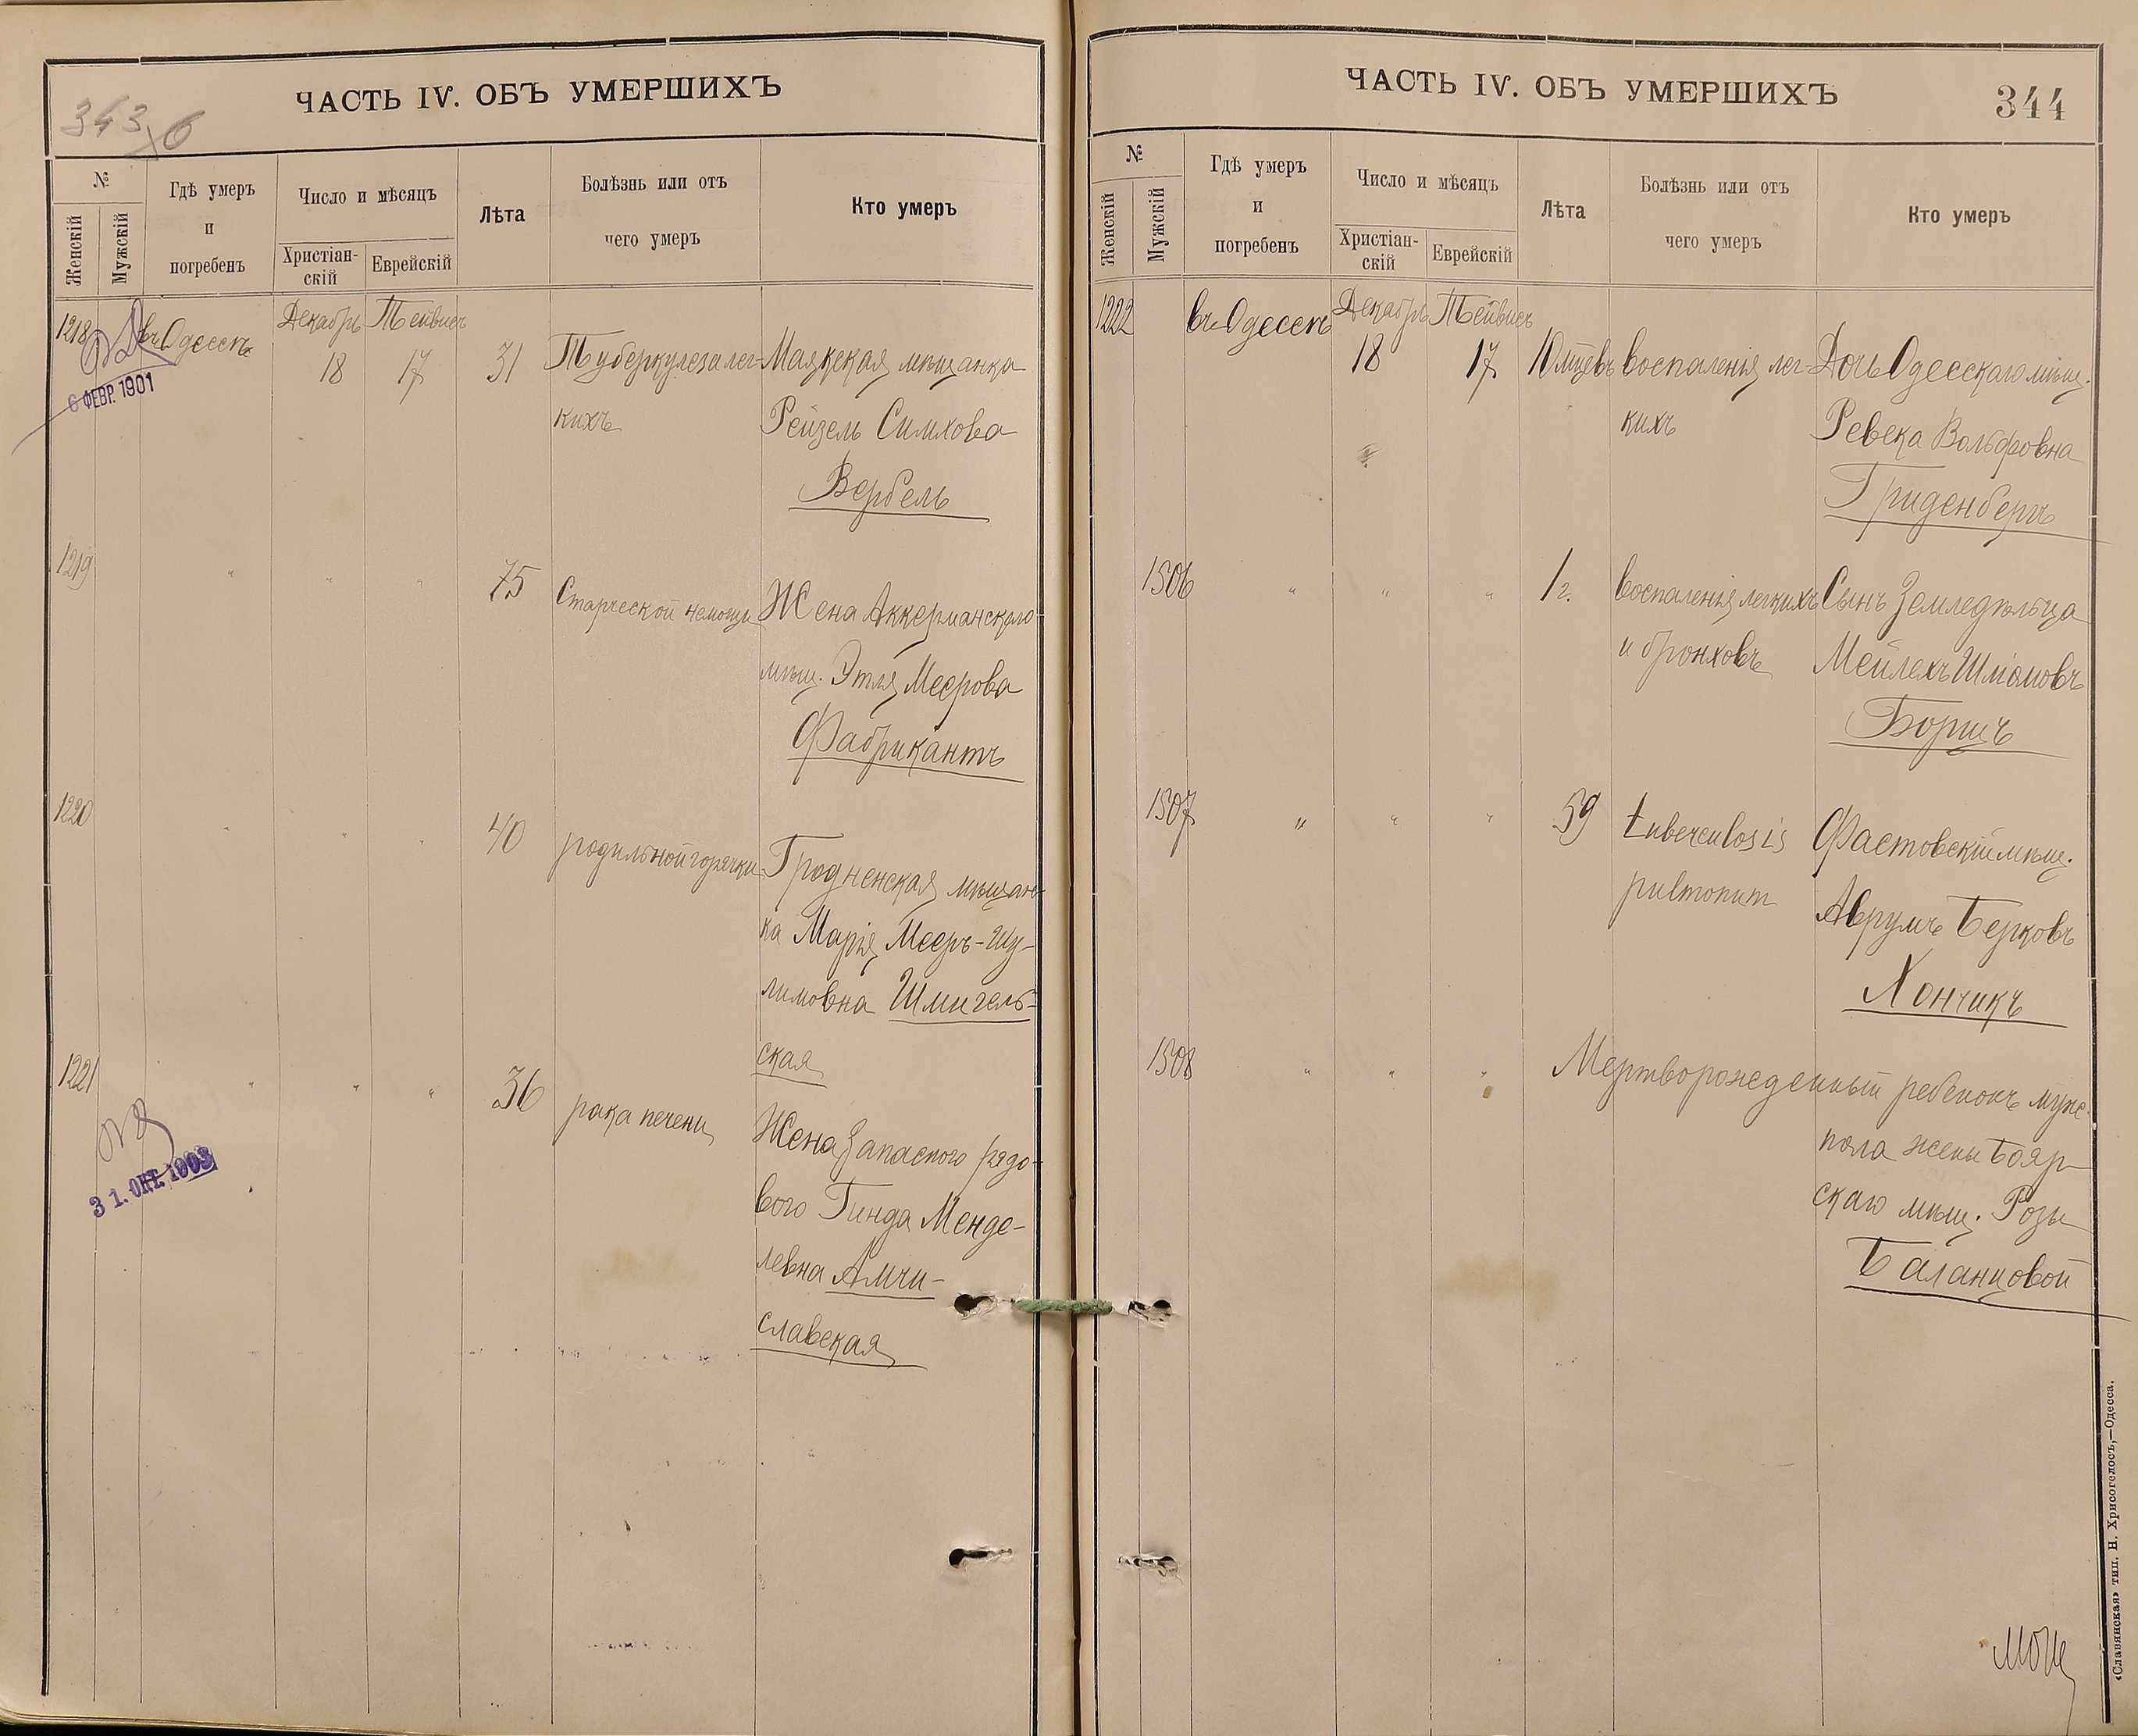 343 об
ЧАСТЬ IV. ОБЪ УМЕРШИХЪ
№
Женскій
Мужскій
Гдѣ умеръ
и
погребенъ
Число и мѣсяцъ
Христіан-
скій
Еврейскій
Лѣта
Болѣзнь или отъ
чего умеръ
Кто умеръ
1218
6 ФЕВР. 1901
въ Одессѣ
Декабрь
18
Тейвисъ
17
31
Туберкулеза лег-
кихъ
Маякская мѣщанка
Рейзель Симхова
Вербель
1219
" " "
75
Старческой немощи
Жена Аккерманскаго
мѣщ. Этля Меерова
Фабрикантъ
1220
" " "
40
родильной горячки
Гродненская мѣщан-
ка Марія Мееръ-Шу-
лимовна Шмигель-
ская
1221
31. ОКТ. 1903
" " "
36
рака печени
Жена Запасного рядо-
вого Гинда Менде-
левна Амчи-
славская
ЧАСТЬ IV. ОБЪ УМЕРШИХЪ
344
№
Женскій
Мужскій
Гдѣ умеръ
и
погребенъ
Число и мѣсяцъ
Христіан-
скій
Еврейскій
Лѣта
Болѣзнь или отъ
чего умеръ
Кто умеръ
1222
въ Одессѣ
Декабрь
18
Тейвисъ
17
10 мѣцевъ
воспаленія лег-
кихъ
Дочь Одесскаго мѣщ.
Ревека Вольфовна
Гриденбергъ
1506
" " "
1 г.
воспаленія легкихъ
и бронховъ
Сынъ Земледѣльца
Мейлехъ Шлiомовъ
Борщъ
1507
" " "
59
tuberculosis
Фастовскій мѣщ.
Аврумъ Берковъ
Хончикъ
1508
" " "
Мертворожденный ребенокъ муж.
пола жены Бояр-
скаго мѣщ. Розы
Баланцовой
«Славянская» тип. Н. Хрисогелосъ,—Одесса.